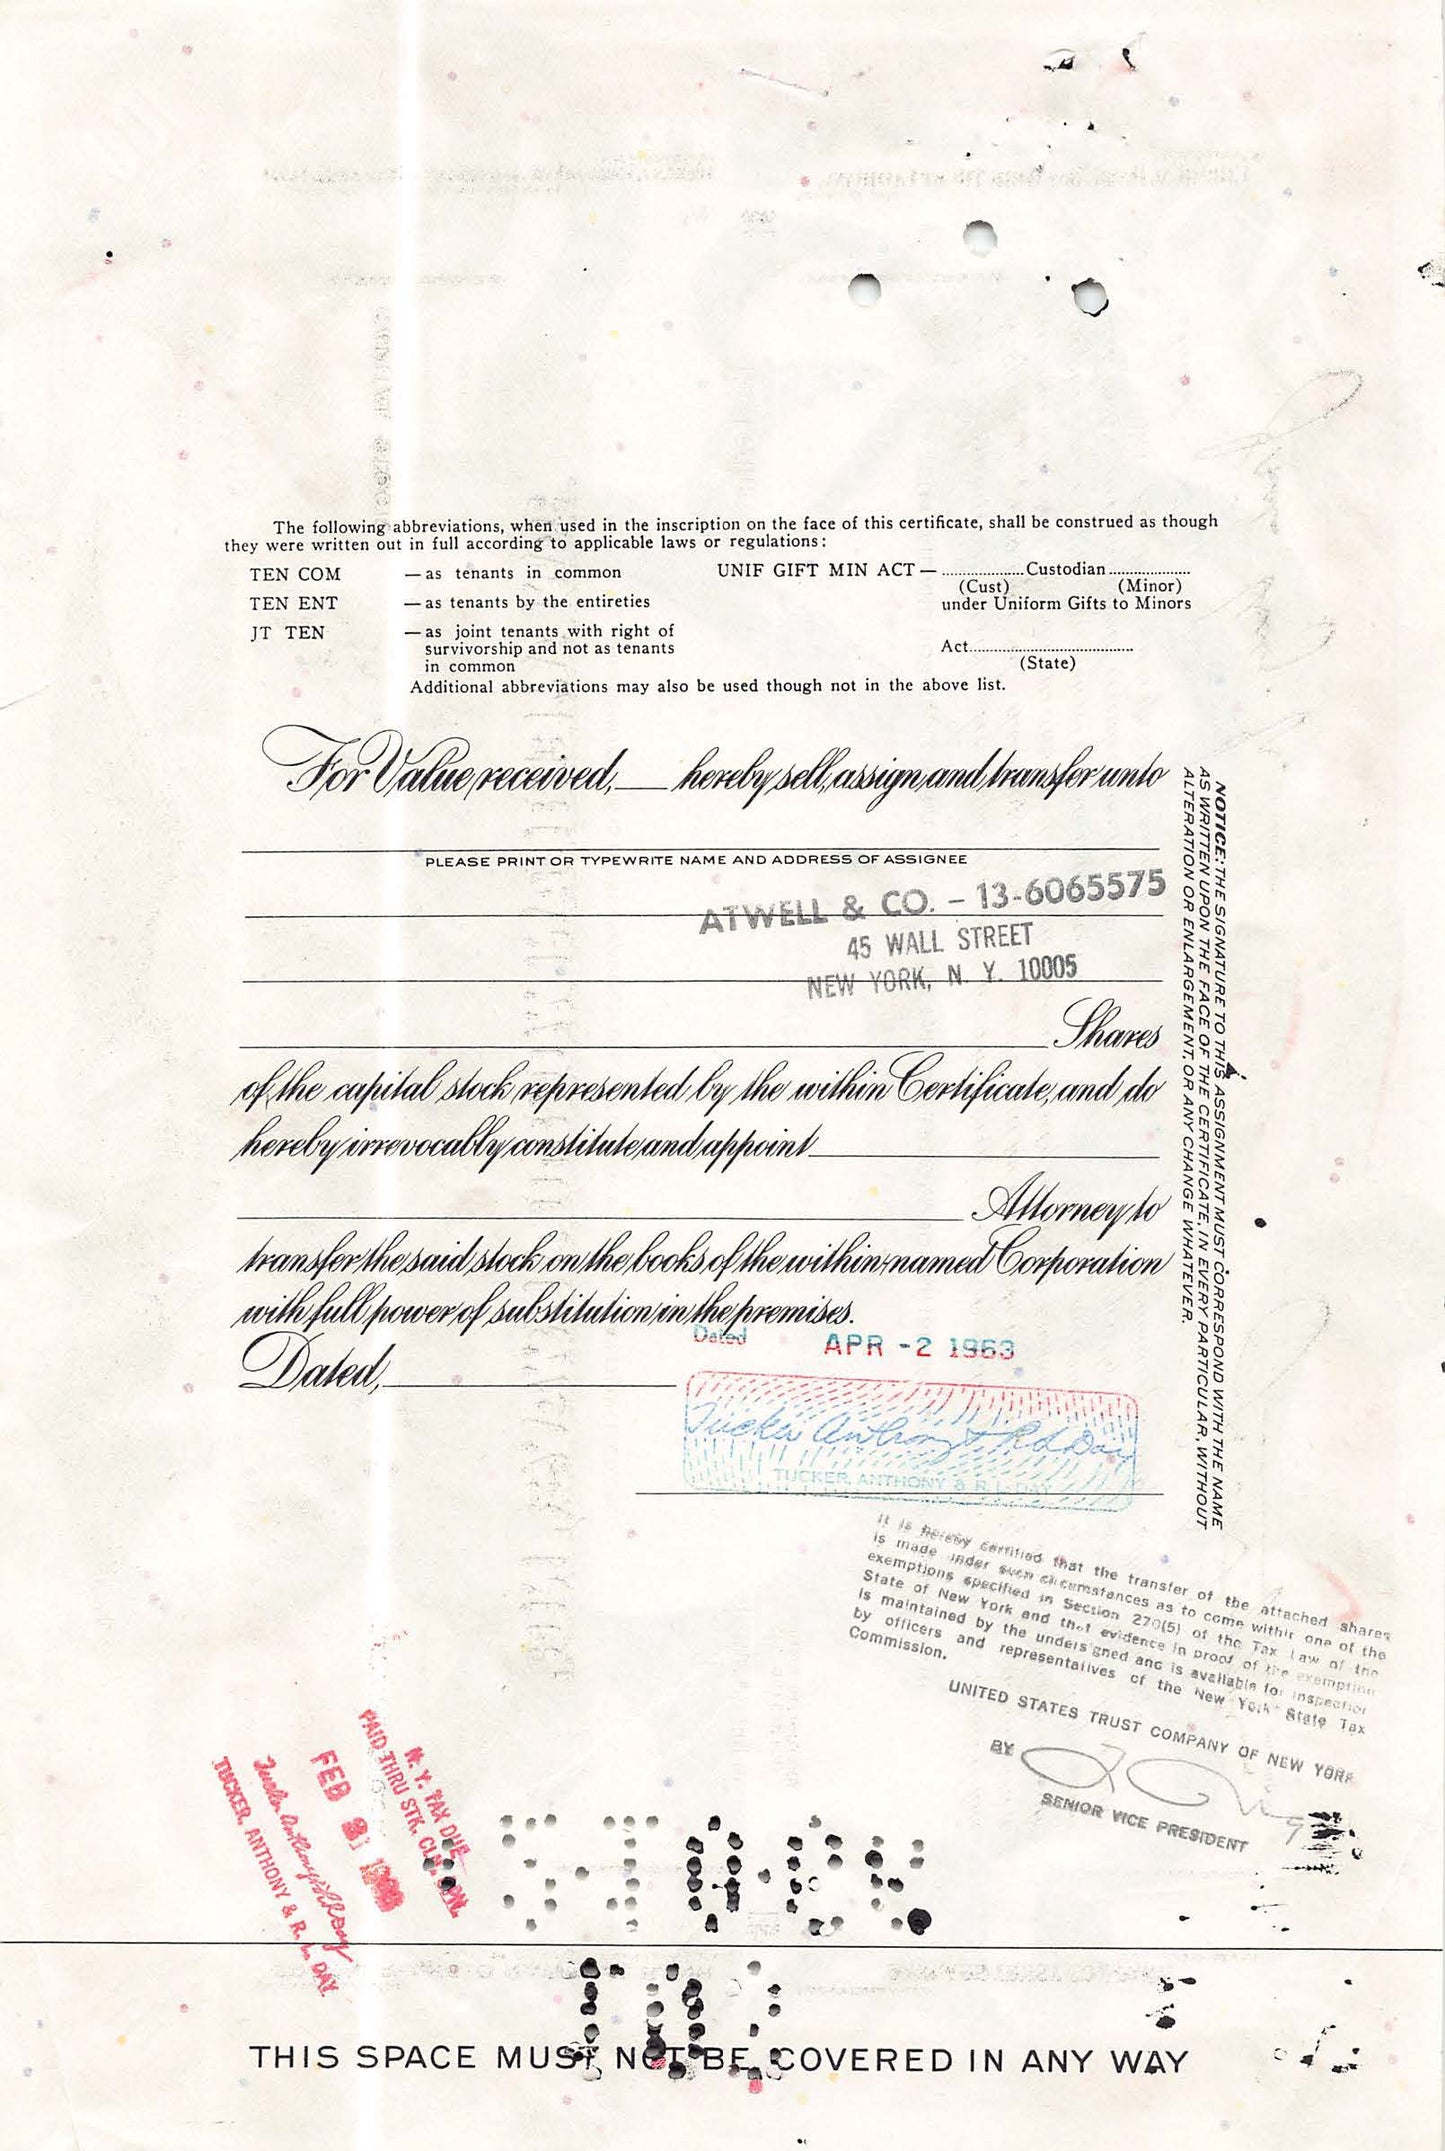 The following abbreviations, when used in the inscription on the face of this certificate, shall be construed as though
they were written out in full according to applicable laws or regulations:
TEN COM — as tenants in common
TEN ENT — as tenants by the entireties
JT TEN — as joint tenants with right of
survivorship and not as tenants
in common
UNIF GIFT MIN ACT — ....................Custodian....................
(Cust) (Minor)
under Uniform Gifts to Minors
Act........................................
(State)
Additional abbreviations may also be used though not in the above list.
For Value received, ____ hereby sell, assign and transfer unto
PLEASE PRINT OR TYPEWRITE NAME AND ADDRESS OF ASSIGNEE
ATWELL & CO. – 13-6065575
45 WALL STREET
NEW YORK, N. Y. 10005
Shares
of the capital stock represented by the within Certificate, and do
hereby irrevocably constitute and appoint
Attorney to
transfer the said stock on the books of the within-named Corporation
with full power of substitution in the premises.
Dated APR -2 1963
Dated,
Tucker Anthony & R L Day
TUCKER, ANTHONY & R. L. DAY
NOTICE: THE SIGNATURE TO THIS ASSIGNMENT MUST CORRESPOND WITH THE NAME
AS WRITTEN UPON THE FACE OF THE CERTIFICATE, IN EVERY PARTICULAR, WITHOUT
ALTERATION OR ENLARGEMENT, OR ANY CHANGE WHATEVER.
It is hereby certified that the transfer of the attached shares
is made under such circumstances as to come within one of the
exemptions specified in Section 270(5) of the Tax Law of the
State of New York and that evidence in proof of the exemption
is maintained by the undersigned and is available for inspection
by officers and representatives of the New York State Tax
Commission.
UNITED STATES TRUST COMPANY OF NEW YORK
BY
SENIOR VICE PRESIDENT
N. Y. TAX DUE
PAID THRU STK. CLR.
FEB
Tucker Anthony & R L Day
TUCKER, ANTHONY & R. L. DAY
THIS SPACE MUST NOT BE COVERED IN ANY WAY